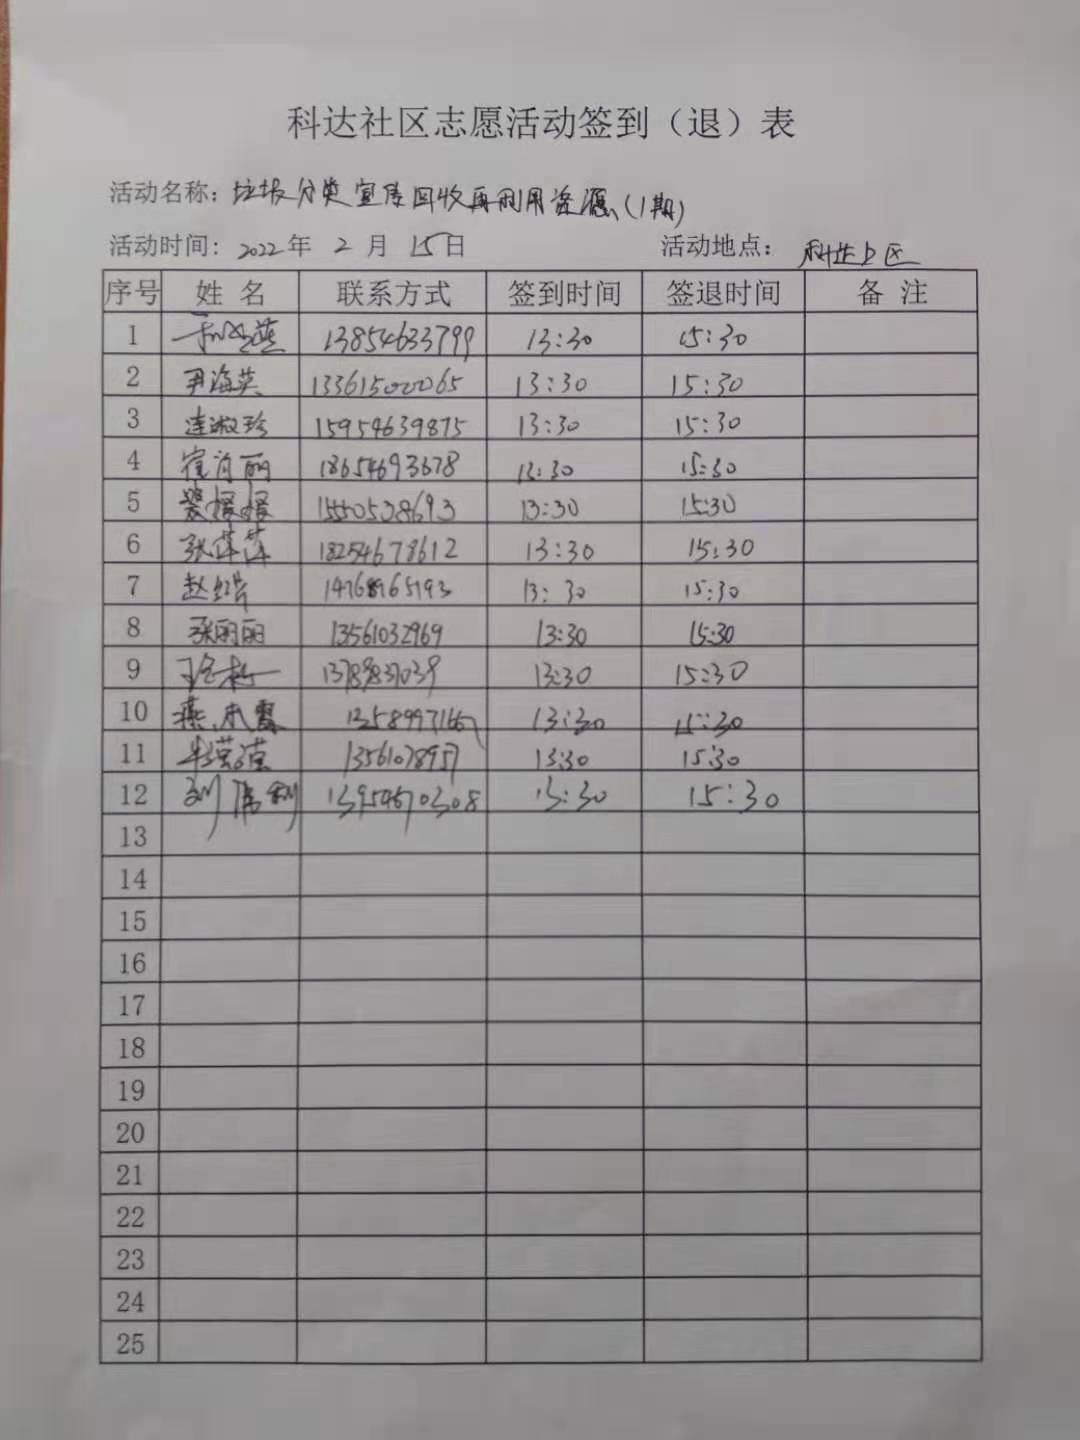 科达社区志愿活动签到（退）表
活动名称：垃圾分类宣传回收再利用资源（1期）
活动时间：2022年 2 月 15日 活动地点：科达社区
序号 姓名 联系方式 签到时间 签退时间 备注
1 13854633799 13:30 15:30
2 尹海英 13361500065 13:30 15:30
3 连淑珍 15954639875 13:30 15:30
4 崔肖丽 18654693678 13:30 15:30
5 媛媛 15505128693 13:30 15:30
6 张萍萍 18254678612 13:30 15:30
7 赵 14768965193 13:30 15:30
8 张丽丽 13561032969 13:30 15:30
9 13789837039 13:30 15:30
10 燕 13:30 15:30
11 莹莹 13:30 15:30
12 刘 13954670308 13:30 15:30
13
14
15
16
17
18
19
20
21
22
23
24
25